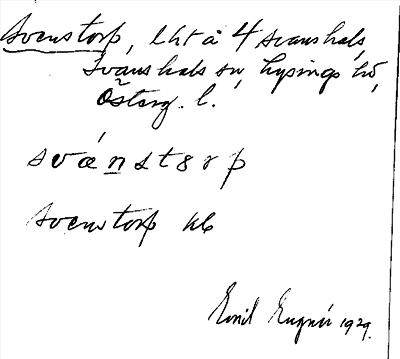 Svenstorp, lht å 4 Svanshals,
Svanshals sn, Lysings hd,
Österg. l.
svénstorp
Svenstorp kb
Emil 1929.